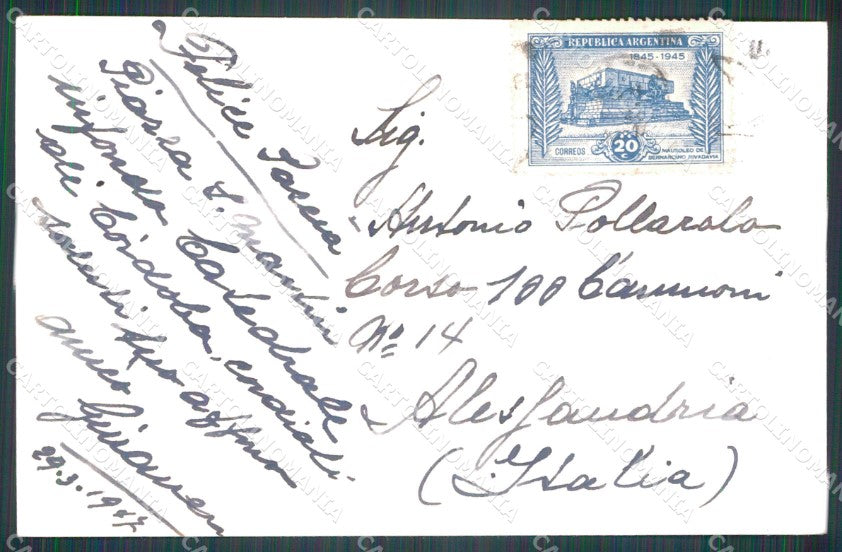 Felice Pasqua
Piazza S. Martin
sfondo Cattedrale
di Cordoba, cordiali
saluti tuo affmo
amico
29.3.1947
REPUBLICA ARGENTINA
1845-1945
CORREOS
20
MAUSOLEO DE
BERNARDINO RIVADAVIA
Sig.
Antonio Pollarolo
Corso 100 Cannoni
Nº 14
Alessandria
(Italia)
CARTOLINOMANIA